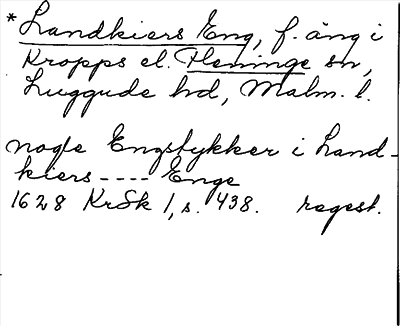 *Landkiers Eng, f. äng i
Kropps el. Fleninge sn,
Luggude hd, Malm. l.
nogle Engstykker i Land-
kiers ---- Enge
1628 KrSk 1, s. 438. regest.